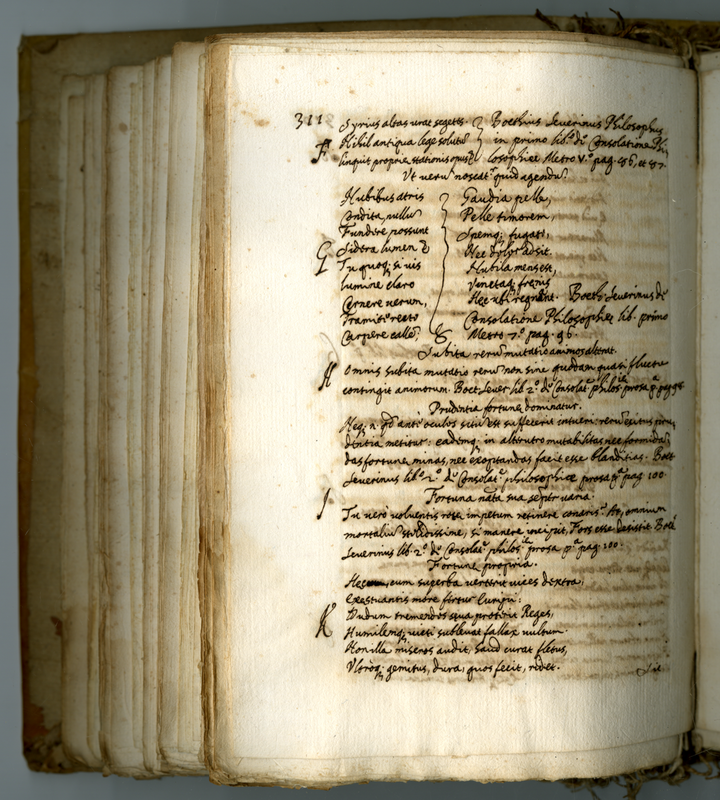 311 Syrius altas urat segetes. Boethius Severinus Philosophus
F Nihil antiqua lege solutũ in primo lib.º dẽ Consolatione Phi
linquit propriæ stationis opus. losophiæ Metro V.º pag. 56, et 57.
Ut verũ noscat.r quid agendũ.
Nubibus atris
Condita nullũ
Fundere possunt
G Sidera lumen
Tu quoq; si vis
lumine claro
Cernere verum,
Tramitẽ recto
Carpere callẽ;
Gaudia pelle,
Pelle timorem,
Spemq; fugato,
Nec dolor adsit.
Nubila mens est,
Vinctaq; frenis
Hæc ubi regnant. Boet. Severinus dẽ
Consolatione Philosophiæ lib. primo
Metro 7.º pag. 96.
Subita rerũ mutatio animos alterat.
H Omnis subita mutatio rerũ non sine quodam quasi fluctu
contingit animorum. Boet. Sever. lib. 2.º dẽ Consolat. philos. prosa p.ª pag. 98.
Prudentia fortunæ dominatur.
Neq; n. qd antẽ oculos situ est suffecerit intueri: rerũ exitus pru
dẽntia metitur: eademq; in alterutro mutabilitas nec formidan
das fortunæ minas, nec exoptandas facit esse blanditias. Boet.
Severinus lib.º 2.º dẽ Consolat. philosophiæ prosa p.ª pag. 100.
Fortuna nãta sua sẽpẽr varia.
I Tu verò volventis rotæ impetum retinere conaris? At, omnium
mortaliũ stolidissime, si manere incipit, Fors esse desistit. Boet.
Severinus lib. 2.º dẽ Consolat. philos. prosa p.ª pag. 100.
Fortunæ propria.
Hæc cum superba verterit vices dextra,
Exæstuantis more fertur Euripi:
K Dudum tremendos sæva proterit Reges,
Humilemq; victi sublevat fallax vultum.
Non illa miseros audit, haud curat fletus,
Ultroq; gemitus, dura, quos fecit, ridet.